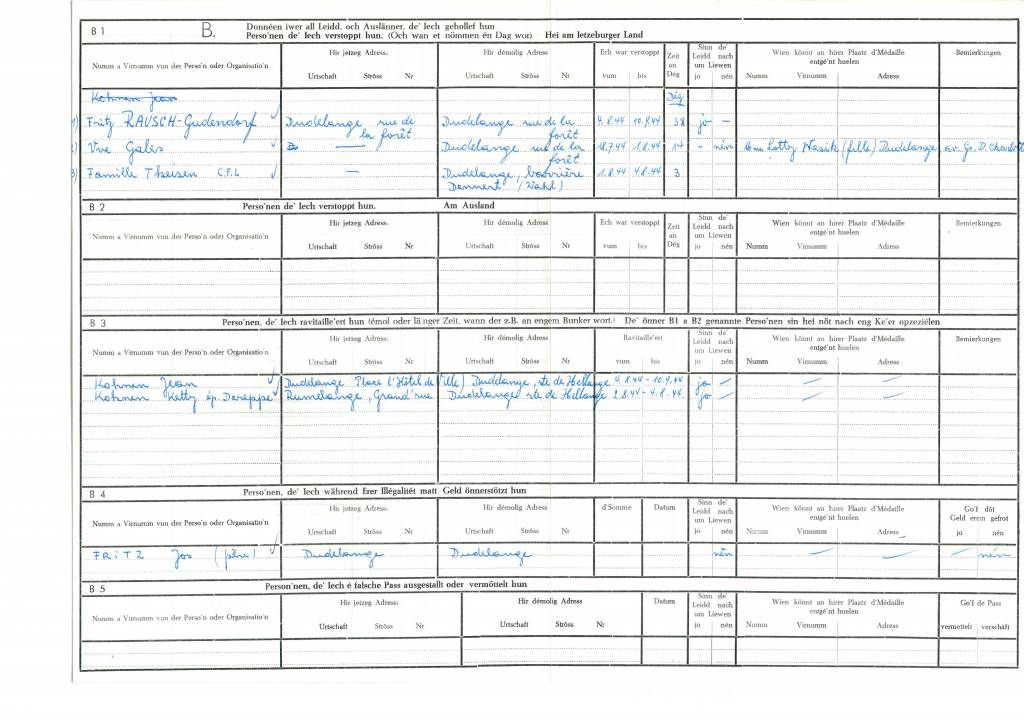 B 1 B. Donnéen iwer all Leidd, och Auslänner, de' Iech gehollef hun
Perso'nen de' Iech verstoppt hun. (Och wan et nömmen én Dag wor) Hei am letzeburger Land
Numm a Virnumm vun der Perso'n oder Organisatio'n Hir jetzeg Adress: Hir démolig Adress Ech war verstoppt Zeit an Dég Sinn de' Leidd nach um Liewen Wien könnt an hirer Plaatz d'Médaille entgé'nt huelen Bemierkungen
Urtschaft Ströss Nr Urtschaft Ströss Nr vum bis jo nén Numm Virnumm Adress
Kohnen Jean Däg
1) Fritz RAUSCH-Gudendorf Dudelange rue de la forêt Dudelange rue de la forêt 4.8.44 10.9.44 38 jo –
2) Vve Gales — Dudelange rue de la forêt 18.7.44 1.8.44 14 – nén Lotty Wasik (fille) Dudelange av. Gr. D. Charlotte
3) Famille Theisen C.F.L — Dudelange, barrière 1.8.44 4.8.44 3
Dennert. (Wahl)
B 2 Perso'nen de' Iech verstoppt hun. Am Ausland
Numm a Virnumm vun der Perso'n oder Organisatio'n Hir jetzeg Adress: Hir démolig Adress Ech war verstoppt Zeit an Dég Sinn de' Leidd nach um Liewen Wien könnt an hirer Plaatz d'Médaille entgé'nt huelen Bemierkungen
Urtschaft Ströss Nr Urtschaft Ströss Nr vum bis jo nén Numm Virnumm Adress
B 3 Perso'nen, de' Iech ravitaille'ert hun (émol oder länger Zeit, wann der z.B. an engem Bunker wort.) De' önner B1 a B2 genannte Perso'nen sin hei nöt nach eng Ke'er opzeziélen
Numm a Virnumm vun der Perso'n oder Organisatio'n Hir jetzeg Adress: Hir démolig Adress Ravitaille'ert Sinn de' Leidd nach um Liewen Wien könnt an hirer Plaatz d'Médaille entgé'nt huelen Bemierkungen
Urtschaft Ströss Nr Urtschaft Ströss Nr vum bis jo nén Numm Virnumm Adress
Kohnen Jean Dudelange Place l'Hôtel de Ville) Dudelange, rte de Hellange 4.8.44 – 10.9.44 jo – — —
Kohnen Ketty ép. Dereppe Rumelange, Grand'rue Dudelange rte de Hellange 2.8.44 – 4.8.44 jo – — —
B 4 Perso'nen, de' Iech während Erer Illégalitét matt Geld önnerstötzt hun
Numm a Virnumm vun der Perso'n oder Organisatio'n Hir jetzeg Adress: Hir démolig Adress d'Somme Datum Sinn de' Leidd nach um Liewen Wien könnt an hirer Plaatz d'Médaille entgé'nt huelen Go'f döt Geld erem gefrot
Urtschaft Ströss Nr Urtschaft Ströss Nr jo nén Numm Virnumm Adress jo nén
FRITZ Jos (père) Dudelange Dudelange nén — — — nén
B 5 Person'nen, de' Iech é falsche Pass ausgestallt oder vermöttelt hun
Numm a Virnumm vun der Perso'n oder Organisatio'n Hir jetzeg Adress: Hir démolig Adress Datum Sinn de' Leidd nach um Liewen Wien könnt an hirer Plaatz d'Médaille entgé'nt huelen Go'f de Pass
Urtschaft Ströss Nr Urtschaft Ströss Nr jo nén Numm Virnumm Adress vermettelt verschäft